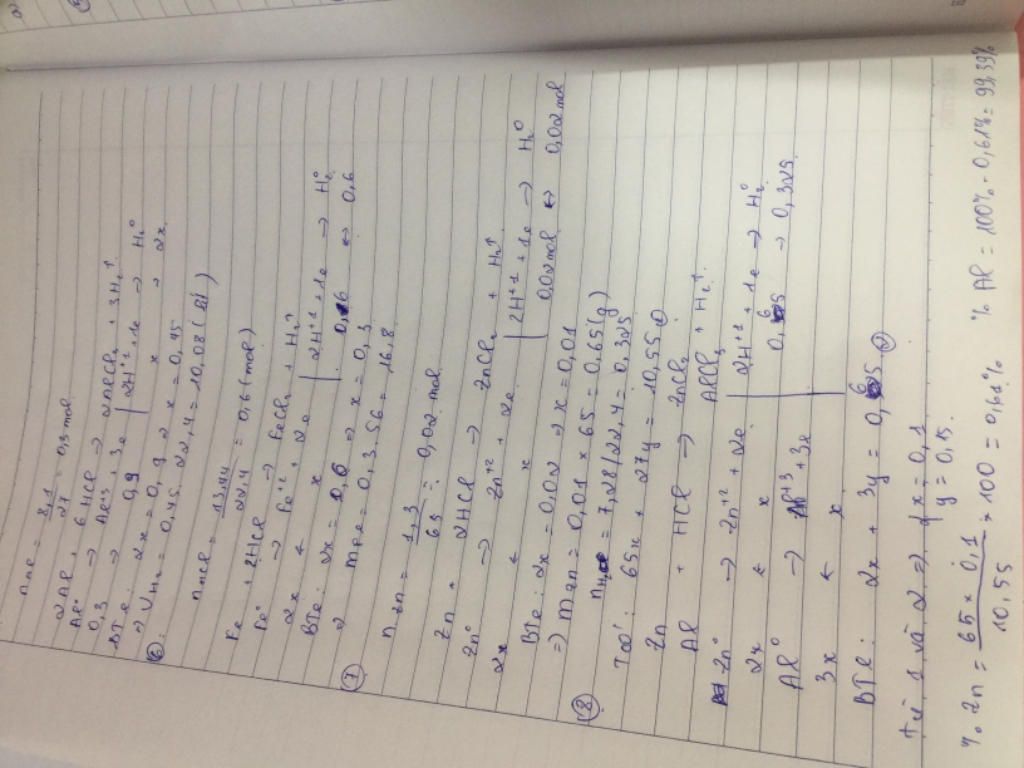 nAl = 8,1/27 = 0,3 mol
2Al + 6HCl → 2AlCl₃ + 3H₂↑
Al⁰ → Al⁺³ + 3e | 2H⁺¹ + 1e → H₂⁰
0,3 → 0,9 x → 2x
BTe: 2x = 0,9 → x = 0,45
⇒ VH₂ = 0,45. 22,4 = 10,08 (lít)
⑥
nHCl = 13,44/22,4 = 0,6 (mol)
Fe + 2HCl → FeCl₂ + H₂↑
Fe⁰ → Fe⁺² + 2e | 2H⁺¹ + 1e → H₂⁰
2x ← x 0,6 ↔ 0,6
BTe: 2x = 0,6 ⇒ x = 0,3
⇒ mFe = 0,3. 56 = 16,8
⑦
nZn = 1,3/65 = 0,02 mol
Zn + 2HCl → ZnCl₂ + H₂↑
Zn⁰ → Zn⁺² + 2e | 2H⁺¹ + 1e → H₂⁰
2x ← x 0,02 mol ↔ 0,02 mol
BTe: 2x = 0,02 ⇒ x = 0,01
⇒ mZn = 0,01 × 65 = 0,65 (g)
⑧ nH₂ = 7,28/22,4 = 0,325
Ta có: 65x + 27y = 10,55 ①
Zn ZnCl₂
Al + HCl → AlCl₃ + H₂↑
Zn⁰ → Zn⁺² + 2e | 2H⁺¹ + 1e → H₂⁰
2x ← x 0,65 → 0,325
Al⁰ → Al⁺³ + 3e
3x ← x
BTe: 2x + 3y = 0,65 ②
Từ 1 và 2 ⇒ { x = 0,1
y = 0,15.
% Zn = 65 × 0,1/10,55 × 100 = 0,61% % Al = 100% - 0,61% = 99,39%